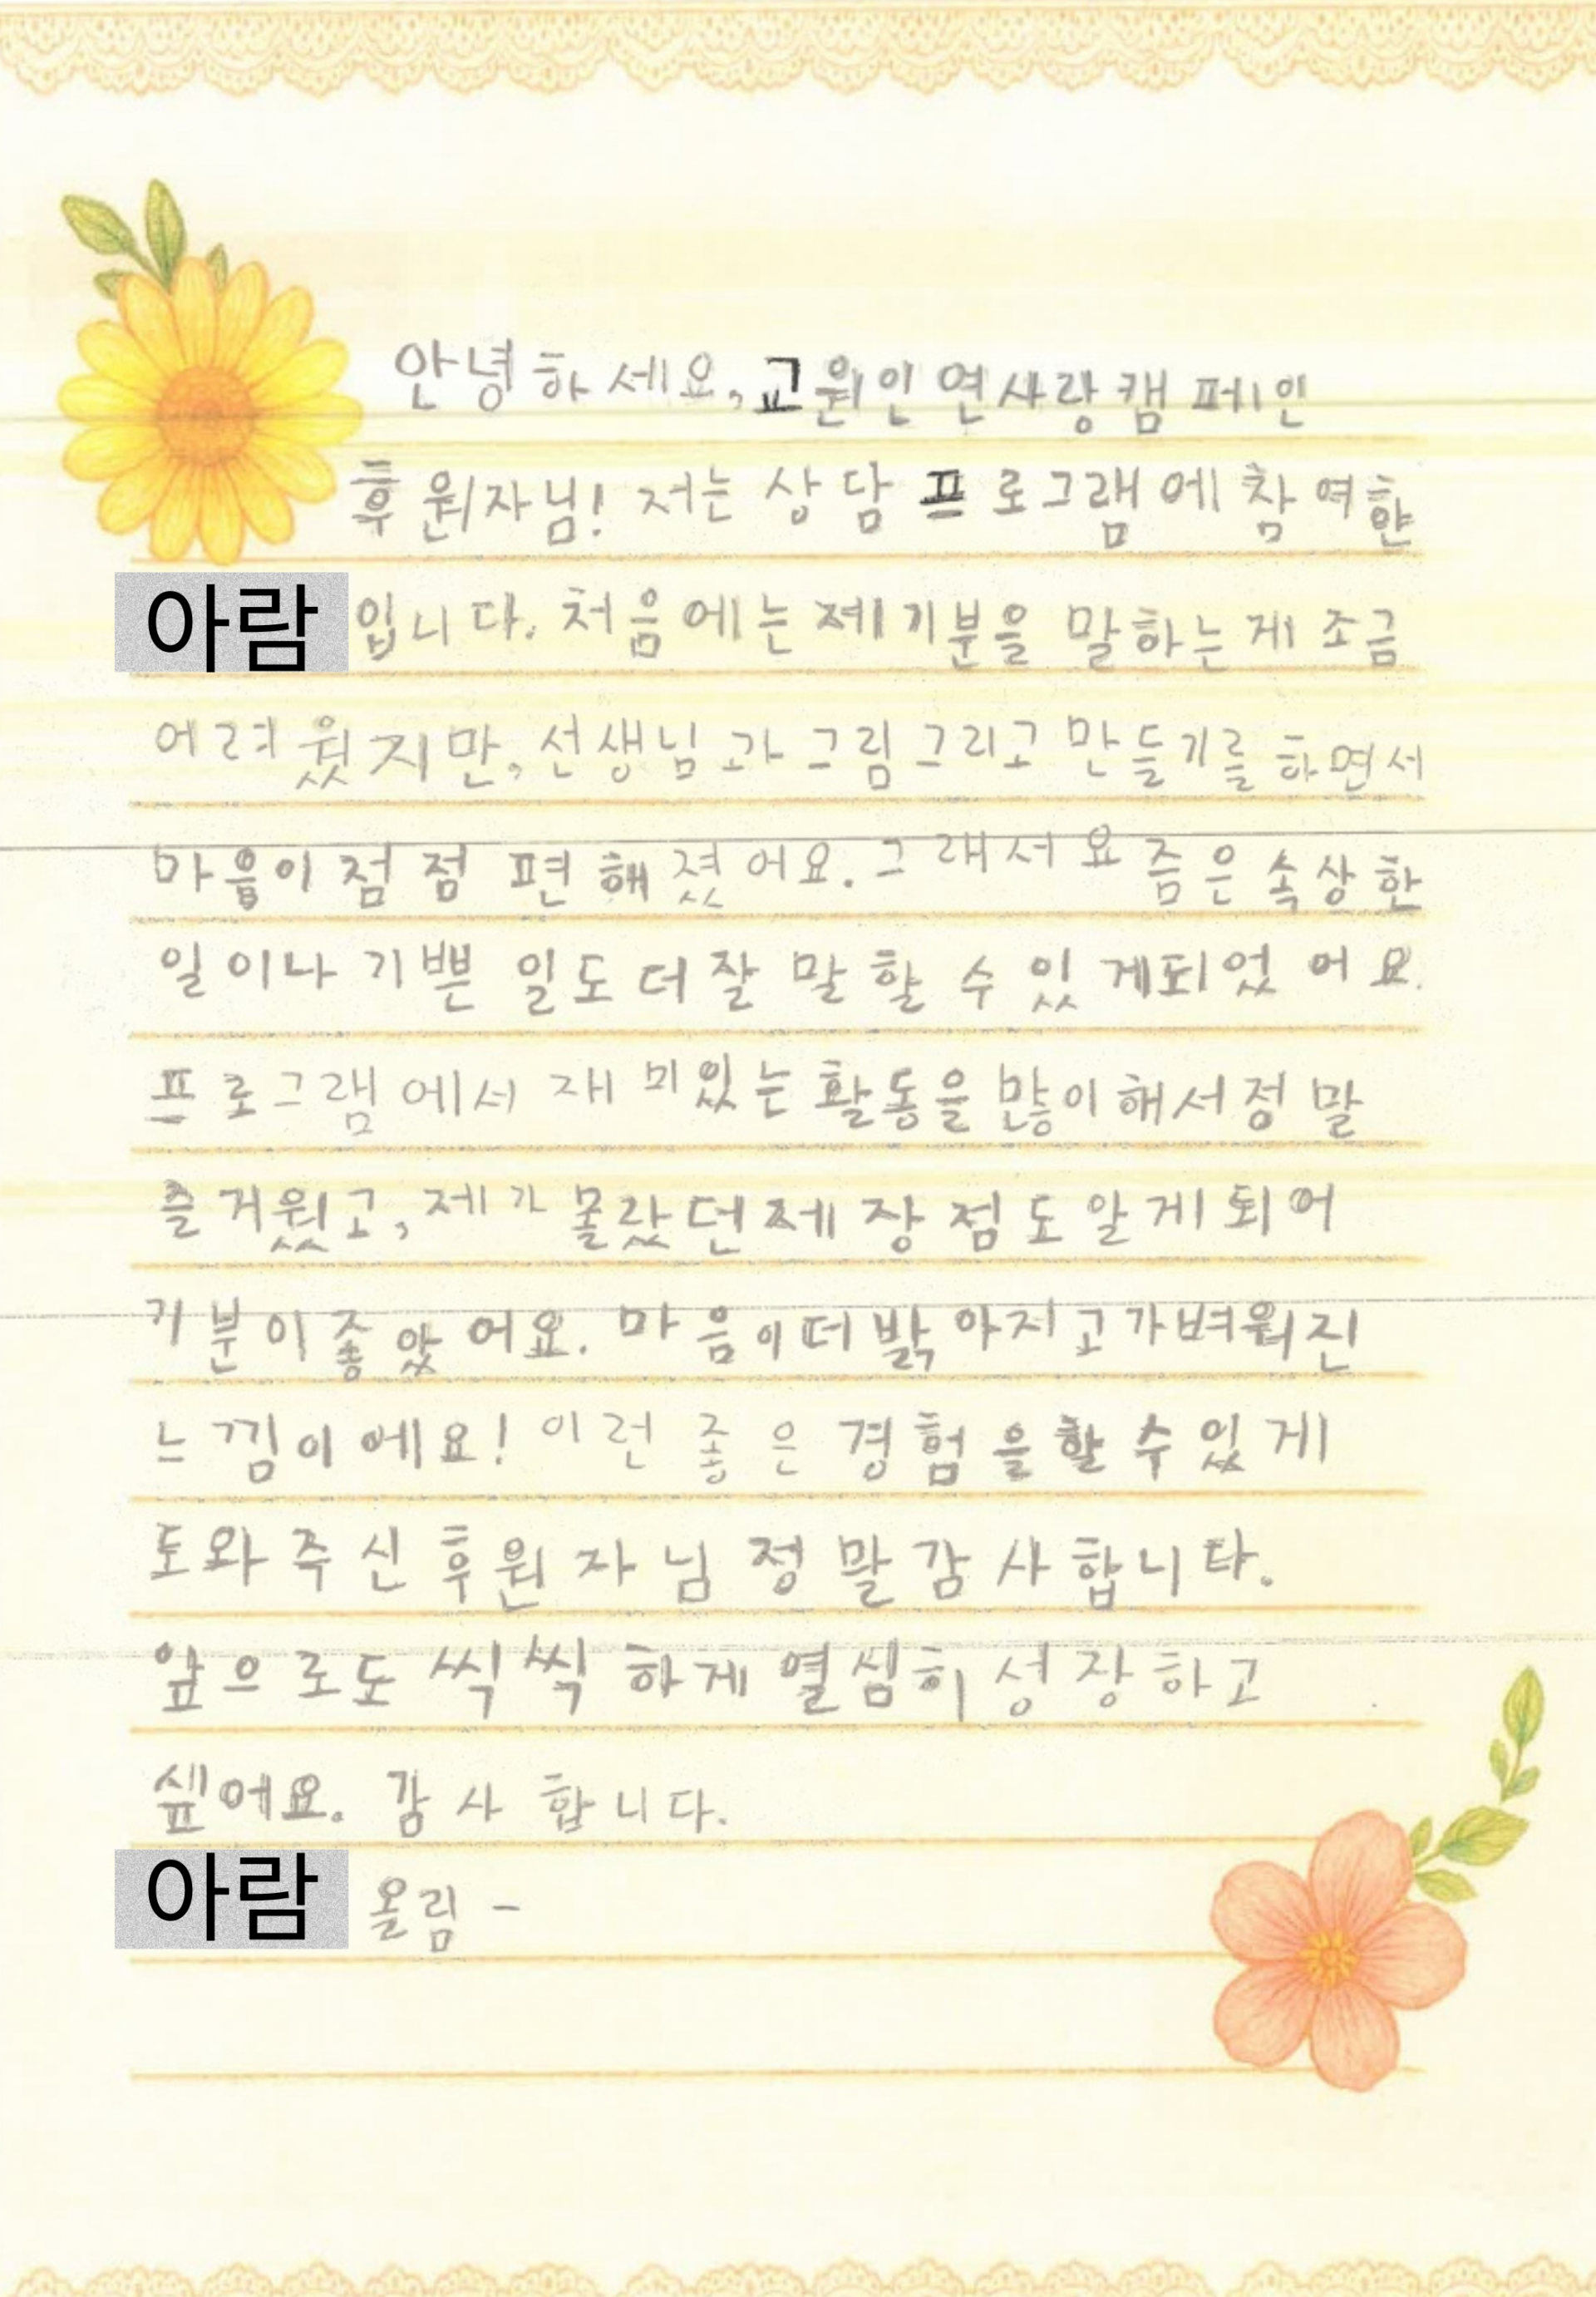 안녕하세요, 교원인연사랑캠페인
후원자님! 저는 상담 프로그램에 참여한
아람 입니다. 처음에는 제 기분을 말하는게 조금
어려웠지만, 선생님과 그림 그리고 만들기를 하면서
마음이 점점 편해졌어요. 그래서 요즘은 속상한
일이나 기쁜 일도 더 잘 말할 수 있게되었어요.
프로그램에서 재미있는 활동을 많이해서 정말
즐거웠고, 제가 몰랐던 제 장점도 알게되어
기분이 좋았어요. 마음이 더 밝아지고 가벼워진
느낌이에요! 이런 좋은 경험을 할 수 있게
도와주신 후원자님 정말 감사합니다.
앞으로도 씩씩하게 열심히 성장하고
싶어요. 감사합니다.
아람 올림 -